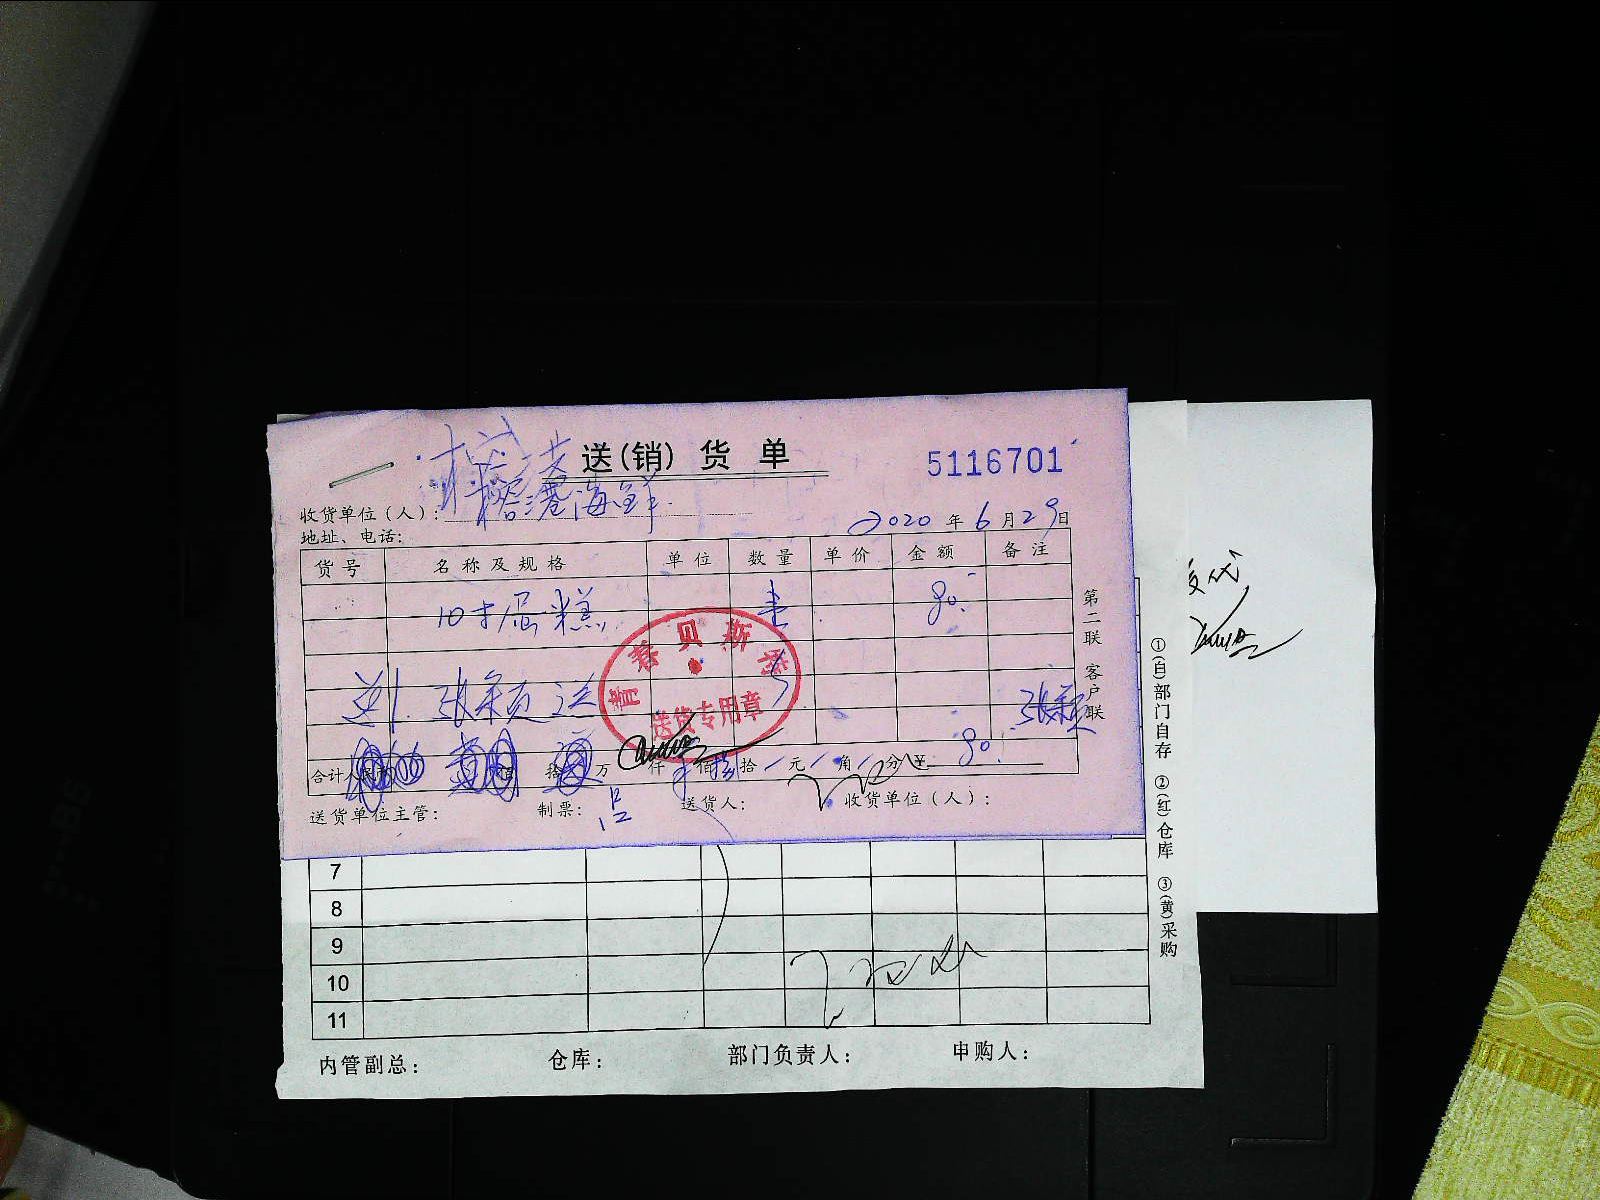 送(销)货单
5116701
收货单位(人):榕港海鲜
2020年6月29日
地址、电话:
货号 名称及规格 单位 数量 单价 金额 备注
10寸 糕 80.
张颖送
张颖
青春贝斯特
送货专用章
合计人民币 佰 拾 万 仟 佰 拾 元 角 分 ¥ 80.
送货单位主管: 制票: 送货人: 收货单位(人):
第二联 客户联
7
8
9
10
11
内管副总: 仓库: 部门负责人: 申购人:
①(白)部门自存 ②(红)仓库 ③(黄)采购